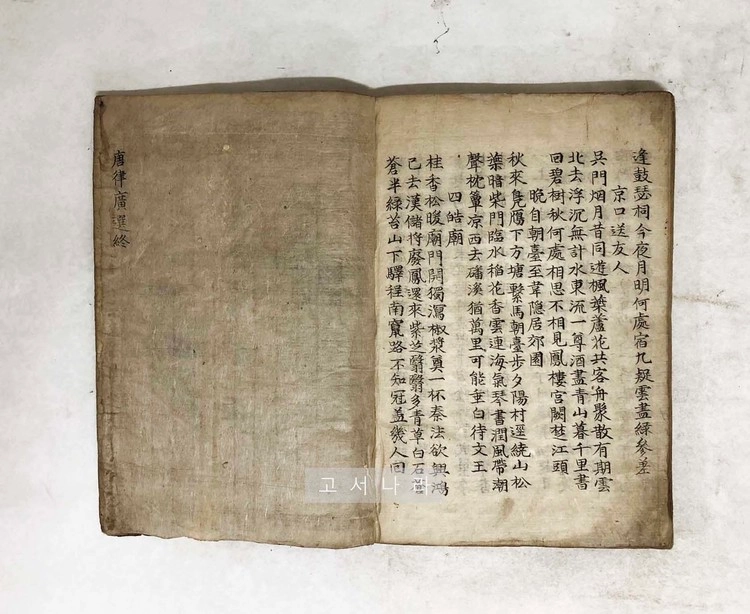 逢鼓瑟祠今夜月明何處宿九疑雲盡綠參差
京口送友人
吳門烟月昔同遊楓葉蘆花共客舟聚散有期雲
北去浮沉無計水東流一尊酒盡青山暮千里書
回碧樹秋何處相思不相見鳳樓宮闕楚江頭
晚自朝臺至韋隱居郊園
秋來鳧鴈下方塘繫馬朝臺步夕陽村逕繞山松
葉暗柴門臨水稻花香雲連海氣琴書潤風帶潮
聲枕簟凉西去磻溪猶萬里可能垂白待文王
四皓廟
桂香松暖廟門開獨瀉椒漿奠一杯秦法欲興鴻
已去漢儲將廢鳳還來紫芝翳翳多青草白石蒼
蒼半綠苔山下驛程南竄路不知冠盖幾人回
唐律廣選終
고서나라